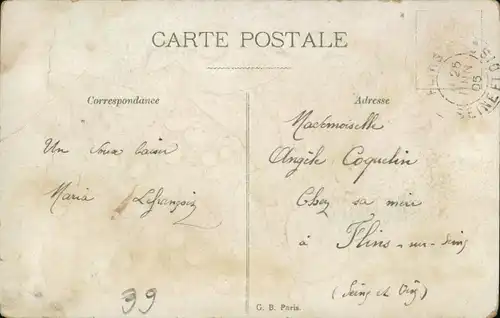 CARTE POSTALE
Correspondance
Un doux baiser
Maria Lefrançois
39
Adresse
Mademoiselle
Angèle Coquelin
Chez sa mère
à Flins-sur-Seine
(Seine et Oise)
G. B. Paris.
25
05